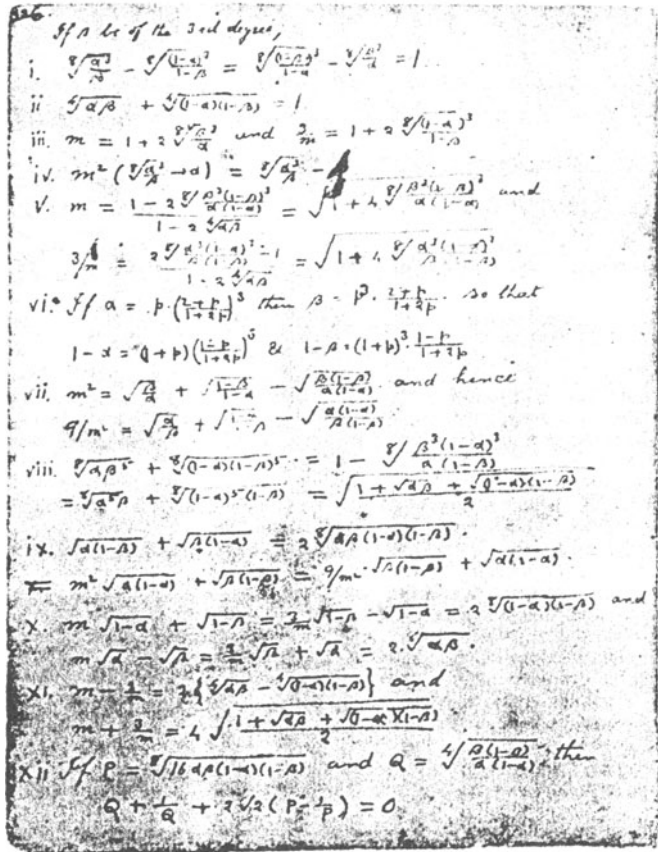 If β be of the 3rd degree,
i. ⁸√(α³/β) − ⁸√((1−α)³/(1−β)) = ⁸√((1−β)³/(1−α)) − ⁸√(β³/α) = 1
ii ⁴√(αβ) + ⁴√((1−α)(1−β)) = 1
iii. m = 1 + 2 ⁸√(β³/α) and 3/m = 1 + 2 ⁸√((1−α)³/(1−β))
iv. m² (⁸√(α³/β) − α) = ⁸√(α³/β) −
v. m = (1 − 2 ⁸√(β³(1−β)³/(α(1−α))))/(1 − 2 ⁴√(αβ)) = √(1 + 4 ⁸√(β³(1−β)³/(α(1−α)))) and
3/m = (2 ⁸√(α³(1−α)³/(β(1−β))) − 1)/(1 − 2 ⁴√(αβ)) = √(1 + 4 ⁸√(α³(1−α)³/(β(1−β))))
vi. If α = p·((2+p)/(1+2p))³ then β = p³·(2+p)/(1+2p) so that
1−α = (1+p)((1−p)/(1+2p))³ & 1−β = (1+p)³·(1−p)/(1+2p)
vii. m² = √(β/α) + √((1−β)/(1−α)) − √(β(1−β)/(α(1−α))) and hence
9/m² = √(α/β) + √((1−α)/(1−β)) − √(α(1−α)/(β(1−β)))
viii. ⁸√(αβ⁵) + ⁸√((1−α)(1−β)⁵) = 1 − ⁸√(β³(1−α)³/(α(1−β)))
= ⁸√(α⁵β) + ⁸√((1−α)⁵(1−β)) = √((1 + √(αβ) + √((1−α)(1−β)))/2)
ix. √(α(1−β)) + √(β(1−α)) = 2 ⁸√(αβ(1−α)(1−β)).
m² √(α(1−α)) + √(β(1−β)) = 9/m² · √(β(1−β)) + √(α(1−α)).
x. m √(1−α) + √(1−β) = 3/m √(1−β) − √(1−α) = 2 ⁸√((1−α)(1−β)) and
m √α − √β = 3/m √β + √α = 2 ⁸√(αβ).
xi. m − 3/m = 2{⁴√(αβ) − ⁴√((1−α)(1−β))} and
m + 3/m = 4 √((1 + √(αβ) + √((1−α)(1−β)))/2)
xii If P = ⁸√(16αβ(1−α)(1−β)) and Q = ⁴√(β(1−β)/(α(1−α))), then
Q + 1/Q + 2√2 (P − 1/P) = 0